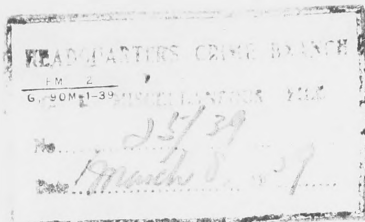 HEADQUARTERS CRIME BRANCH
FM. 2
G. 90M-1-39
MISCELLANEOUS FILE
No. 25/39
Date March 8 1939